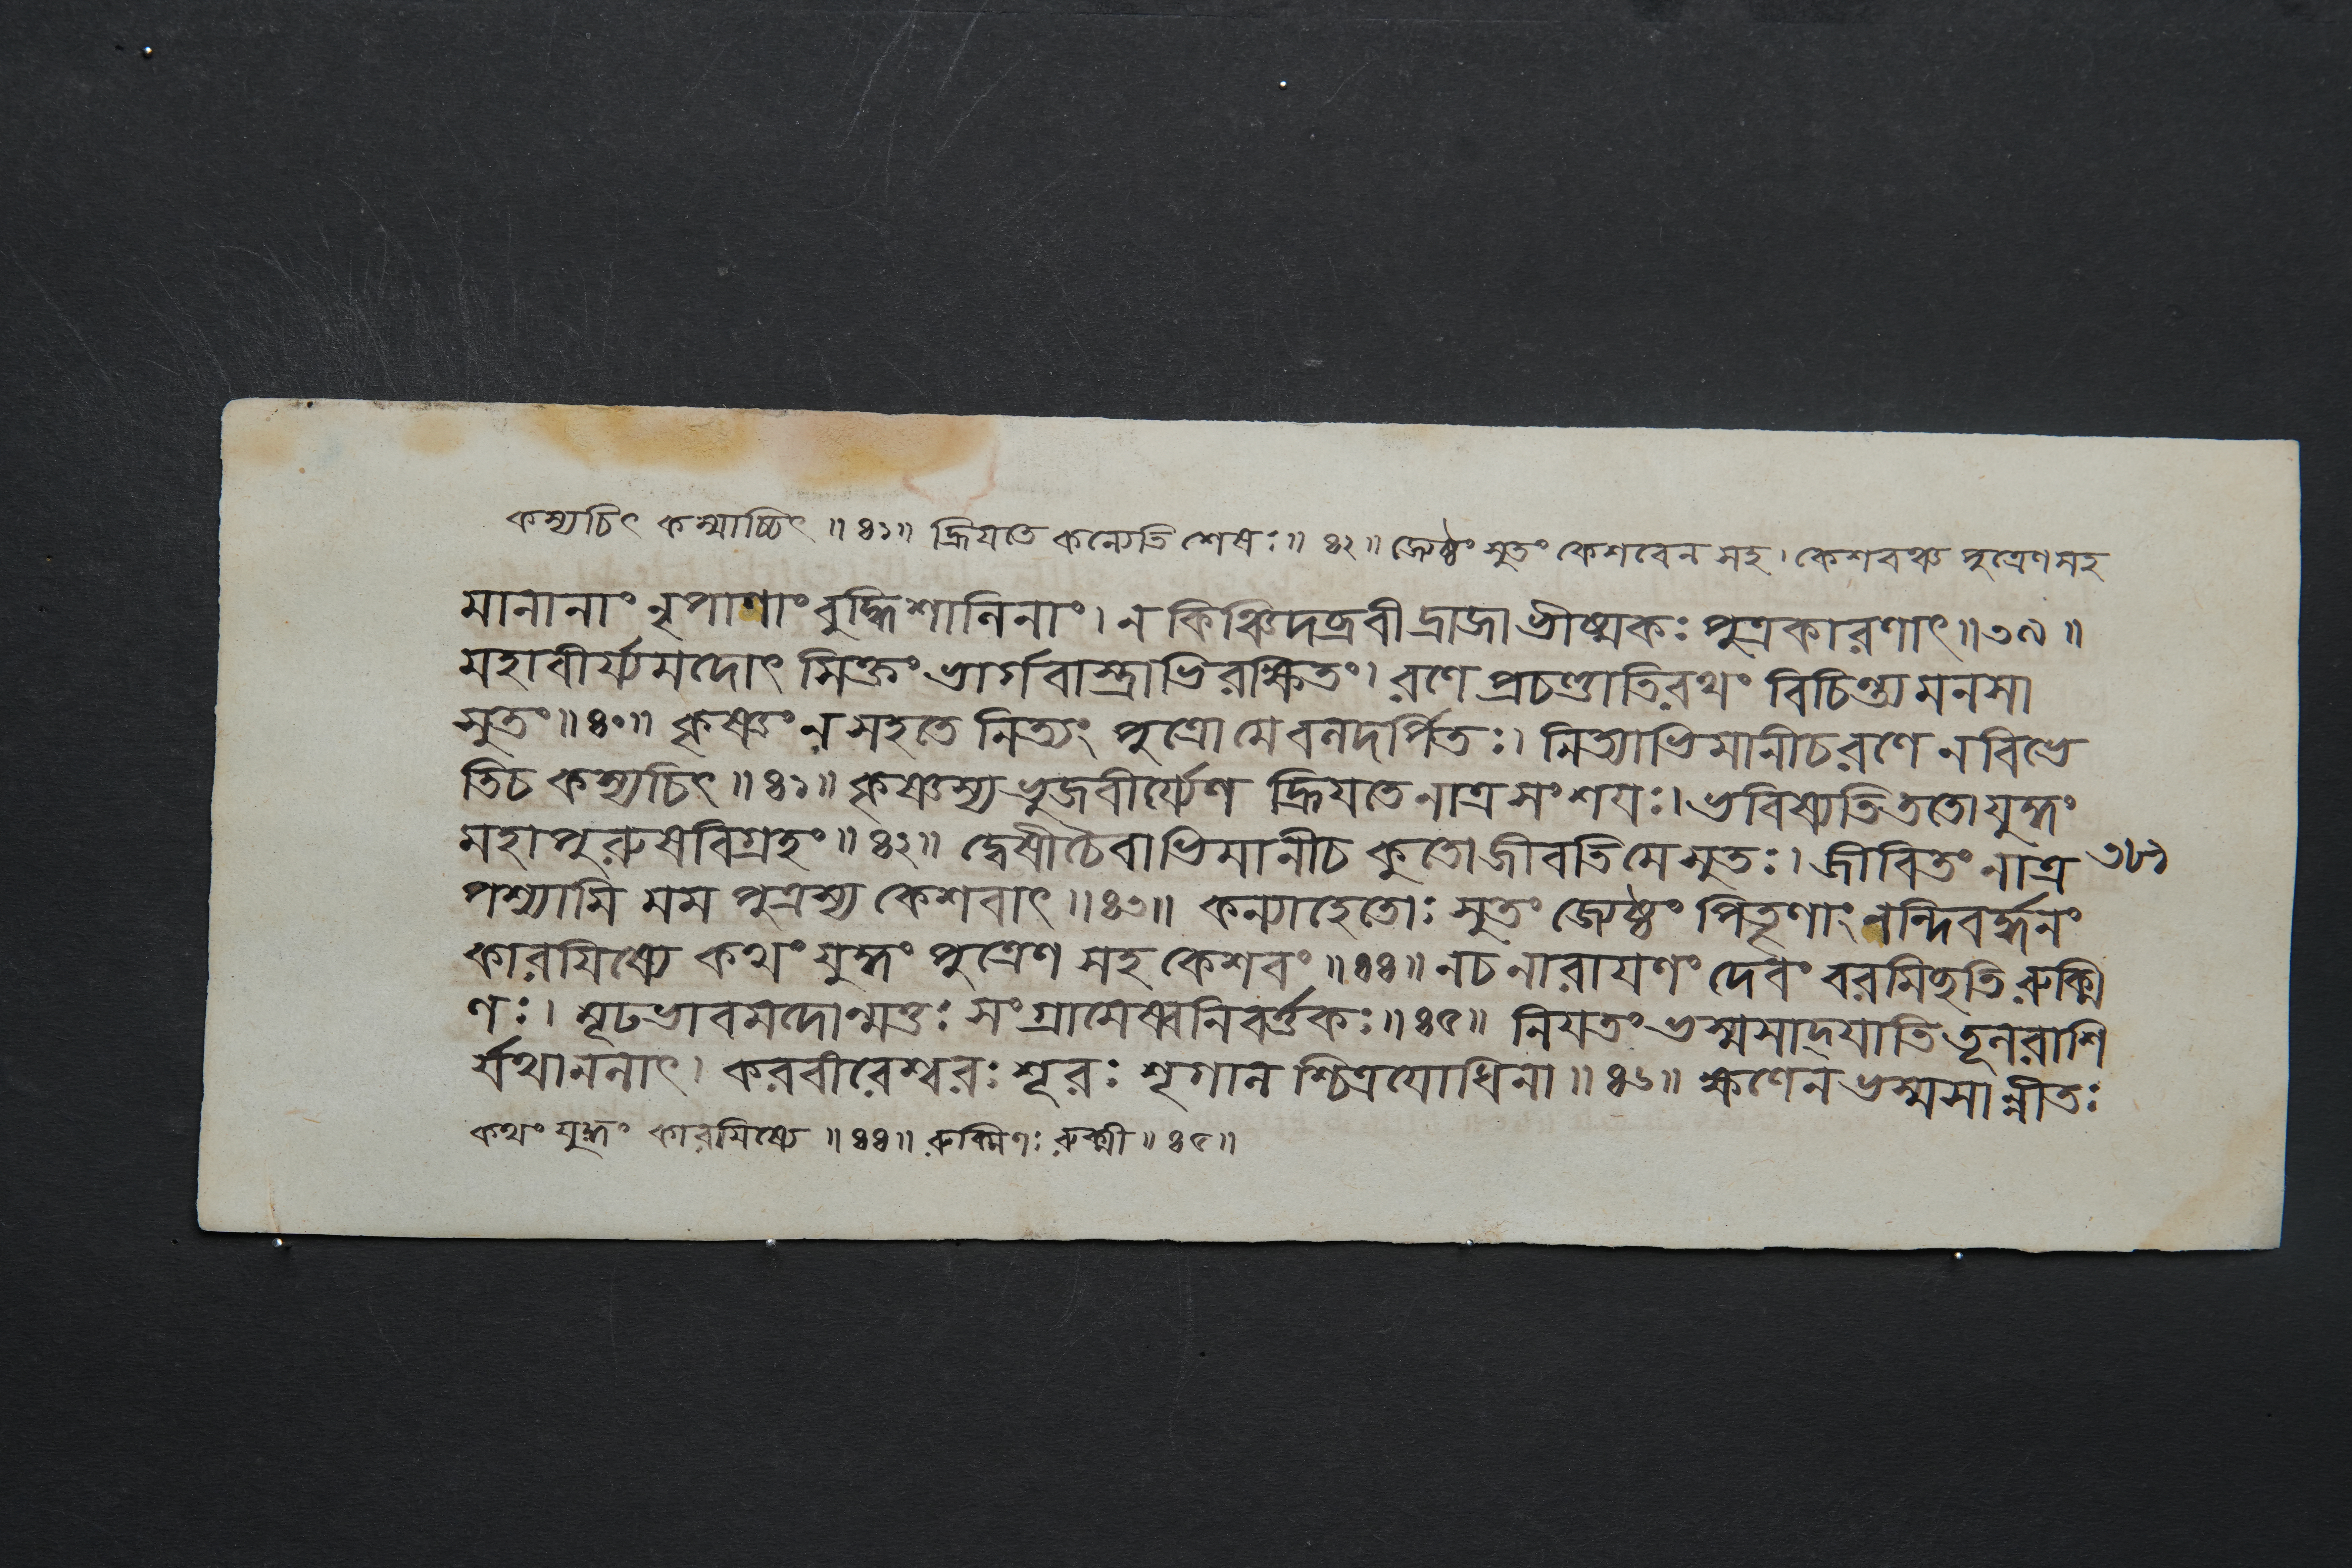 কস্যচিৎ কস্মাচ্চিৎ ॥ ৪১॥ হ্রিয়তে কন্যেতি শেষঃ॥ ৪২॥ জ্যেষ্ঠং সুতং কেশবেন সহ। কেশবঞ্চ পুত্রেণ সহ
মানানাং নৃপাণাং বুদ্ধিশালিনাং। ন কিঞ্চিদব্রবীদ্রাজা ভীষ্মকঃ পুত্রকারণাৎ॥৩৯॥
মহাবীর্য্যমদোৎসিক্তং ভার্গবাস্ত্রাভিরক্ষিতং। রণে প্রচণ্ডাতিরথং বিচিন্ত্য মনসা
সুতং॥৪০॥ কৃষ্ণং ন সহতে নিত্যং পুত্রো মে বলদর্পিতঃ। নিত্যাভিমানীচ রণে ন বিভে
তিচ কস্যচিৎ॥৪১॥ কৃষ্ণস্য ভুজবীর্য্যেণ হ্রিয়তে নাত্র সংশয়ঃ। ভবিষ্যতি ততো যুদ্ধং
মহাপুরুষবিগ্রহং॥৪২॥ দ্বেষী চৈবাভিমানীচ কুতো জীবতি মে সুতঃ। জীবিতং নাত্র ৩৮১
পশ্যামি মম পুত্রস্য কেশবাৎ॥৪৩॥ কন্যাহেতোঃ সুতং জ্যেষ্ঠং পিতৄণাং নন্দিবর্দ্ধনং
কারয়িষ্যে কথং যুদ্ধং পুত্রেণ সহ কেশবং॥৪৪॥ নচ নারায়ণং দেবং বরমিচ্ছতি রুক্মি
ণঃ। মূঢভাবমদোন্মত্তঃ সংগ্রামেষ্বনিবর্ত্তকঃ॥৪৫॥ নিয়তং ভস্মসাদ্যাতি তূলরাশি
র্যথানলাৎ। করবীরেশ্বরঃ শূরঃ শৃগালশ্চিত্রযোধিনা॥৪৬॥ ক্ষণেন ভস্মসান্নীতঃ
কথং যুদ্ধং কারয়িষ্যে ॥৪৪॥ রুক্মিণঃ রুক্মী ॥৪৫॥